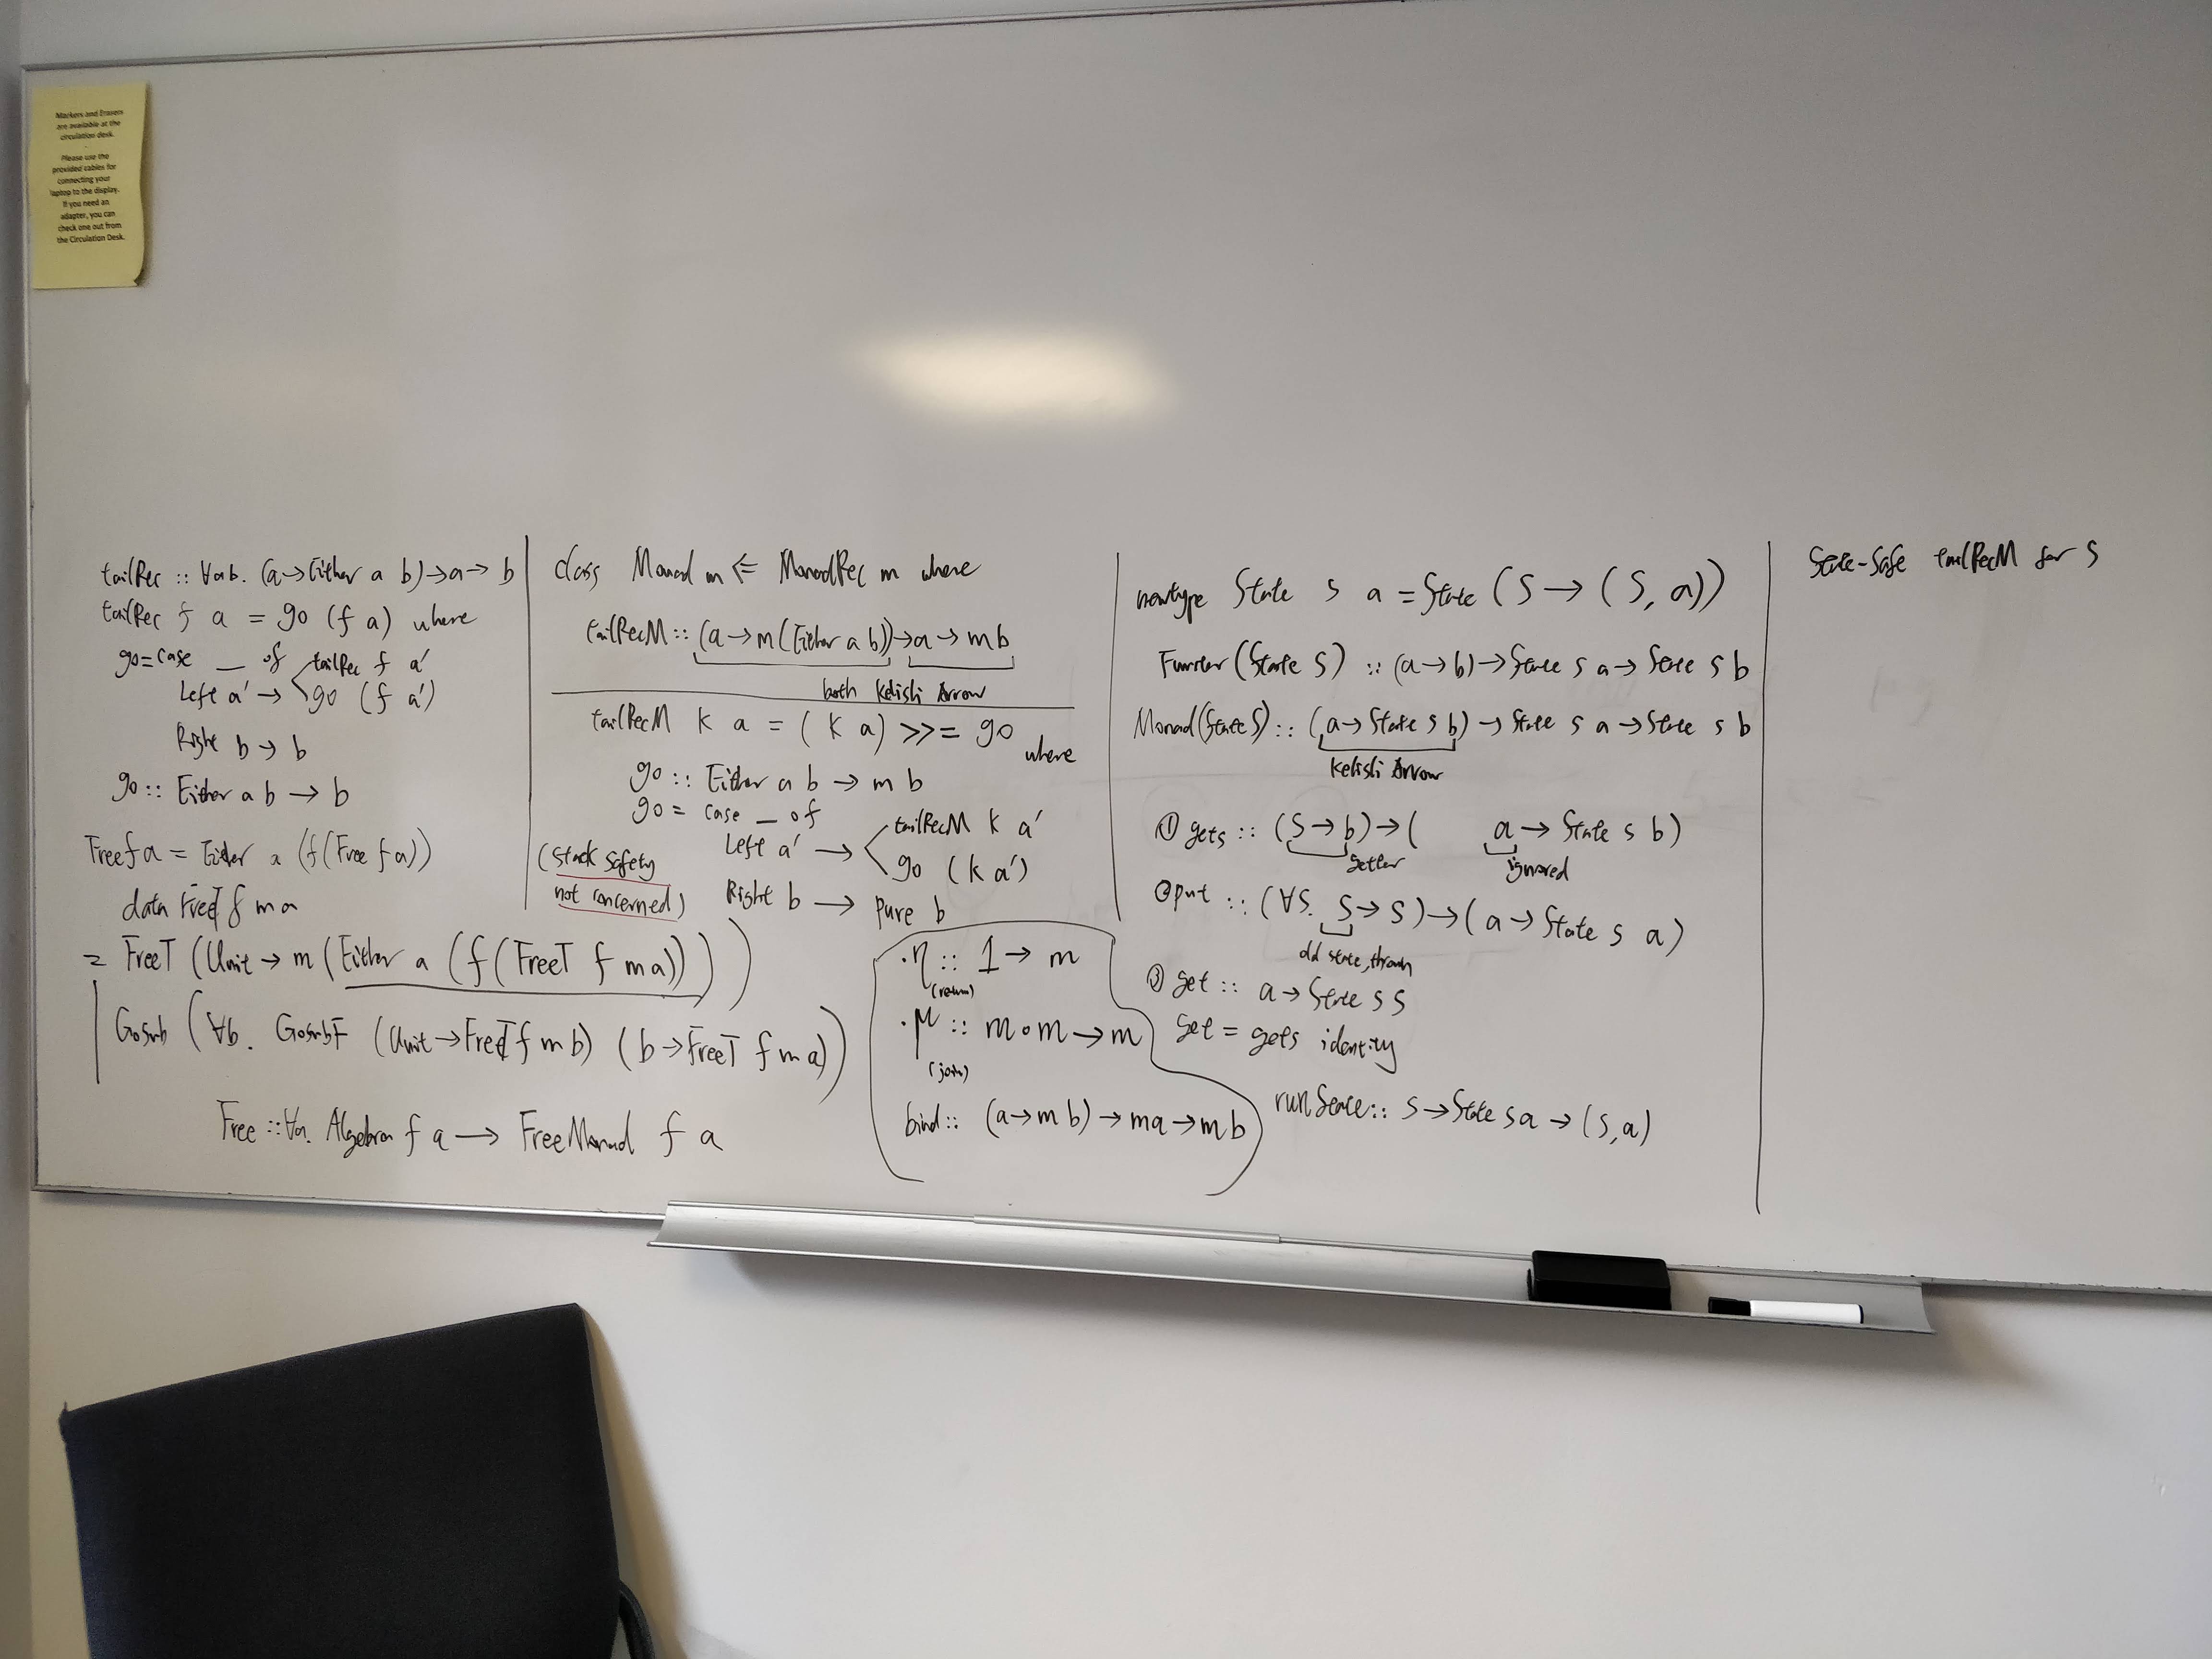 Markers and Erasers
are available at the
circulation desk.
Please use the
provided cables for
connecting your
laptop to the display.
If you need an
adapter, you can
check one out from
the Circulation Desk.
tailRec :: ∀ab. (a→Either a b)→a→ b
tailRec f a = go (f a) where
go=case _ of
tailRec f a'
Left a' → go (f a')
Right b → b
go :: Either a b → b
Free f a = Either a (f(Free f a))
data FreeT f m a
= FreeT (Unit → m (Either a (f(FreeT f m a))))
| Gosub (∀b. GosubF (Unit→FreeT f m b) (b→FreeT f m a))
Free ::∀a. Algebra f a → FreeMonad f a
class Monad m <= MonadRec m where
tailRecM :: (a→m(Either a b))→a→ m b
both Kelisli Arrow
tailRecM k a = (k a) >>= go
where
go :: Either a b → m b
go = case _ of
tailRecM k a'
Left a' →
go (k a')
(stack safety
not concerned)
Right b → pure b
. η :: 1 → m
(return)
. μ :: m∘m → m
(join)
bind :: (a→m b) → m a → m b
newtype State s a = State (S → (S, a))
Functor(State S) :: (a→b)→State s a→ State s b
Monad(State S) :: (a→ State s b) → State s a → State s b
Kelisli Arrow
① gets :: (S→b)→( a→ State s b)
getter
ignored
② put :: (∀S. S→ S)→( a→ State s a)
old state, thrown
③ get :: a→ State s s
get = gets identity
runState :: s→State s a → (s,a)
State-Safe tailRecM for S